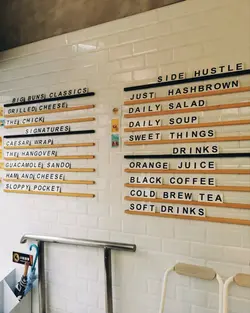 BIG BUNS CLASSICS
GRILLED CHEESE
THE CHICK
SIGNATURES
CAESAR WRAP
THE HANGOVER
GUACAMOLE SANDO
HAM AND CHEESE
SLOPPY POCKET
SIDE HUSTLE
JUST HASHBROWN
DAILY SALAD
DAILY SOUP
SWEET THINGS
DRINKS
ORANGE JUICE
BLACK COFFEE
COLD BREW TEA
SOFT DRINKS